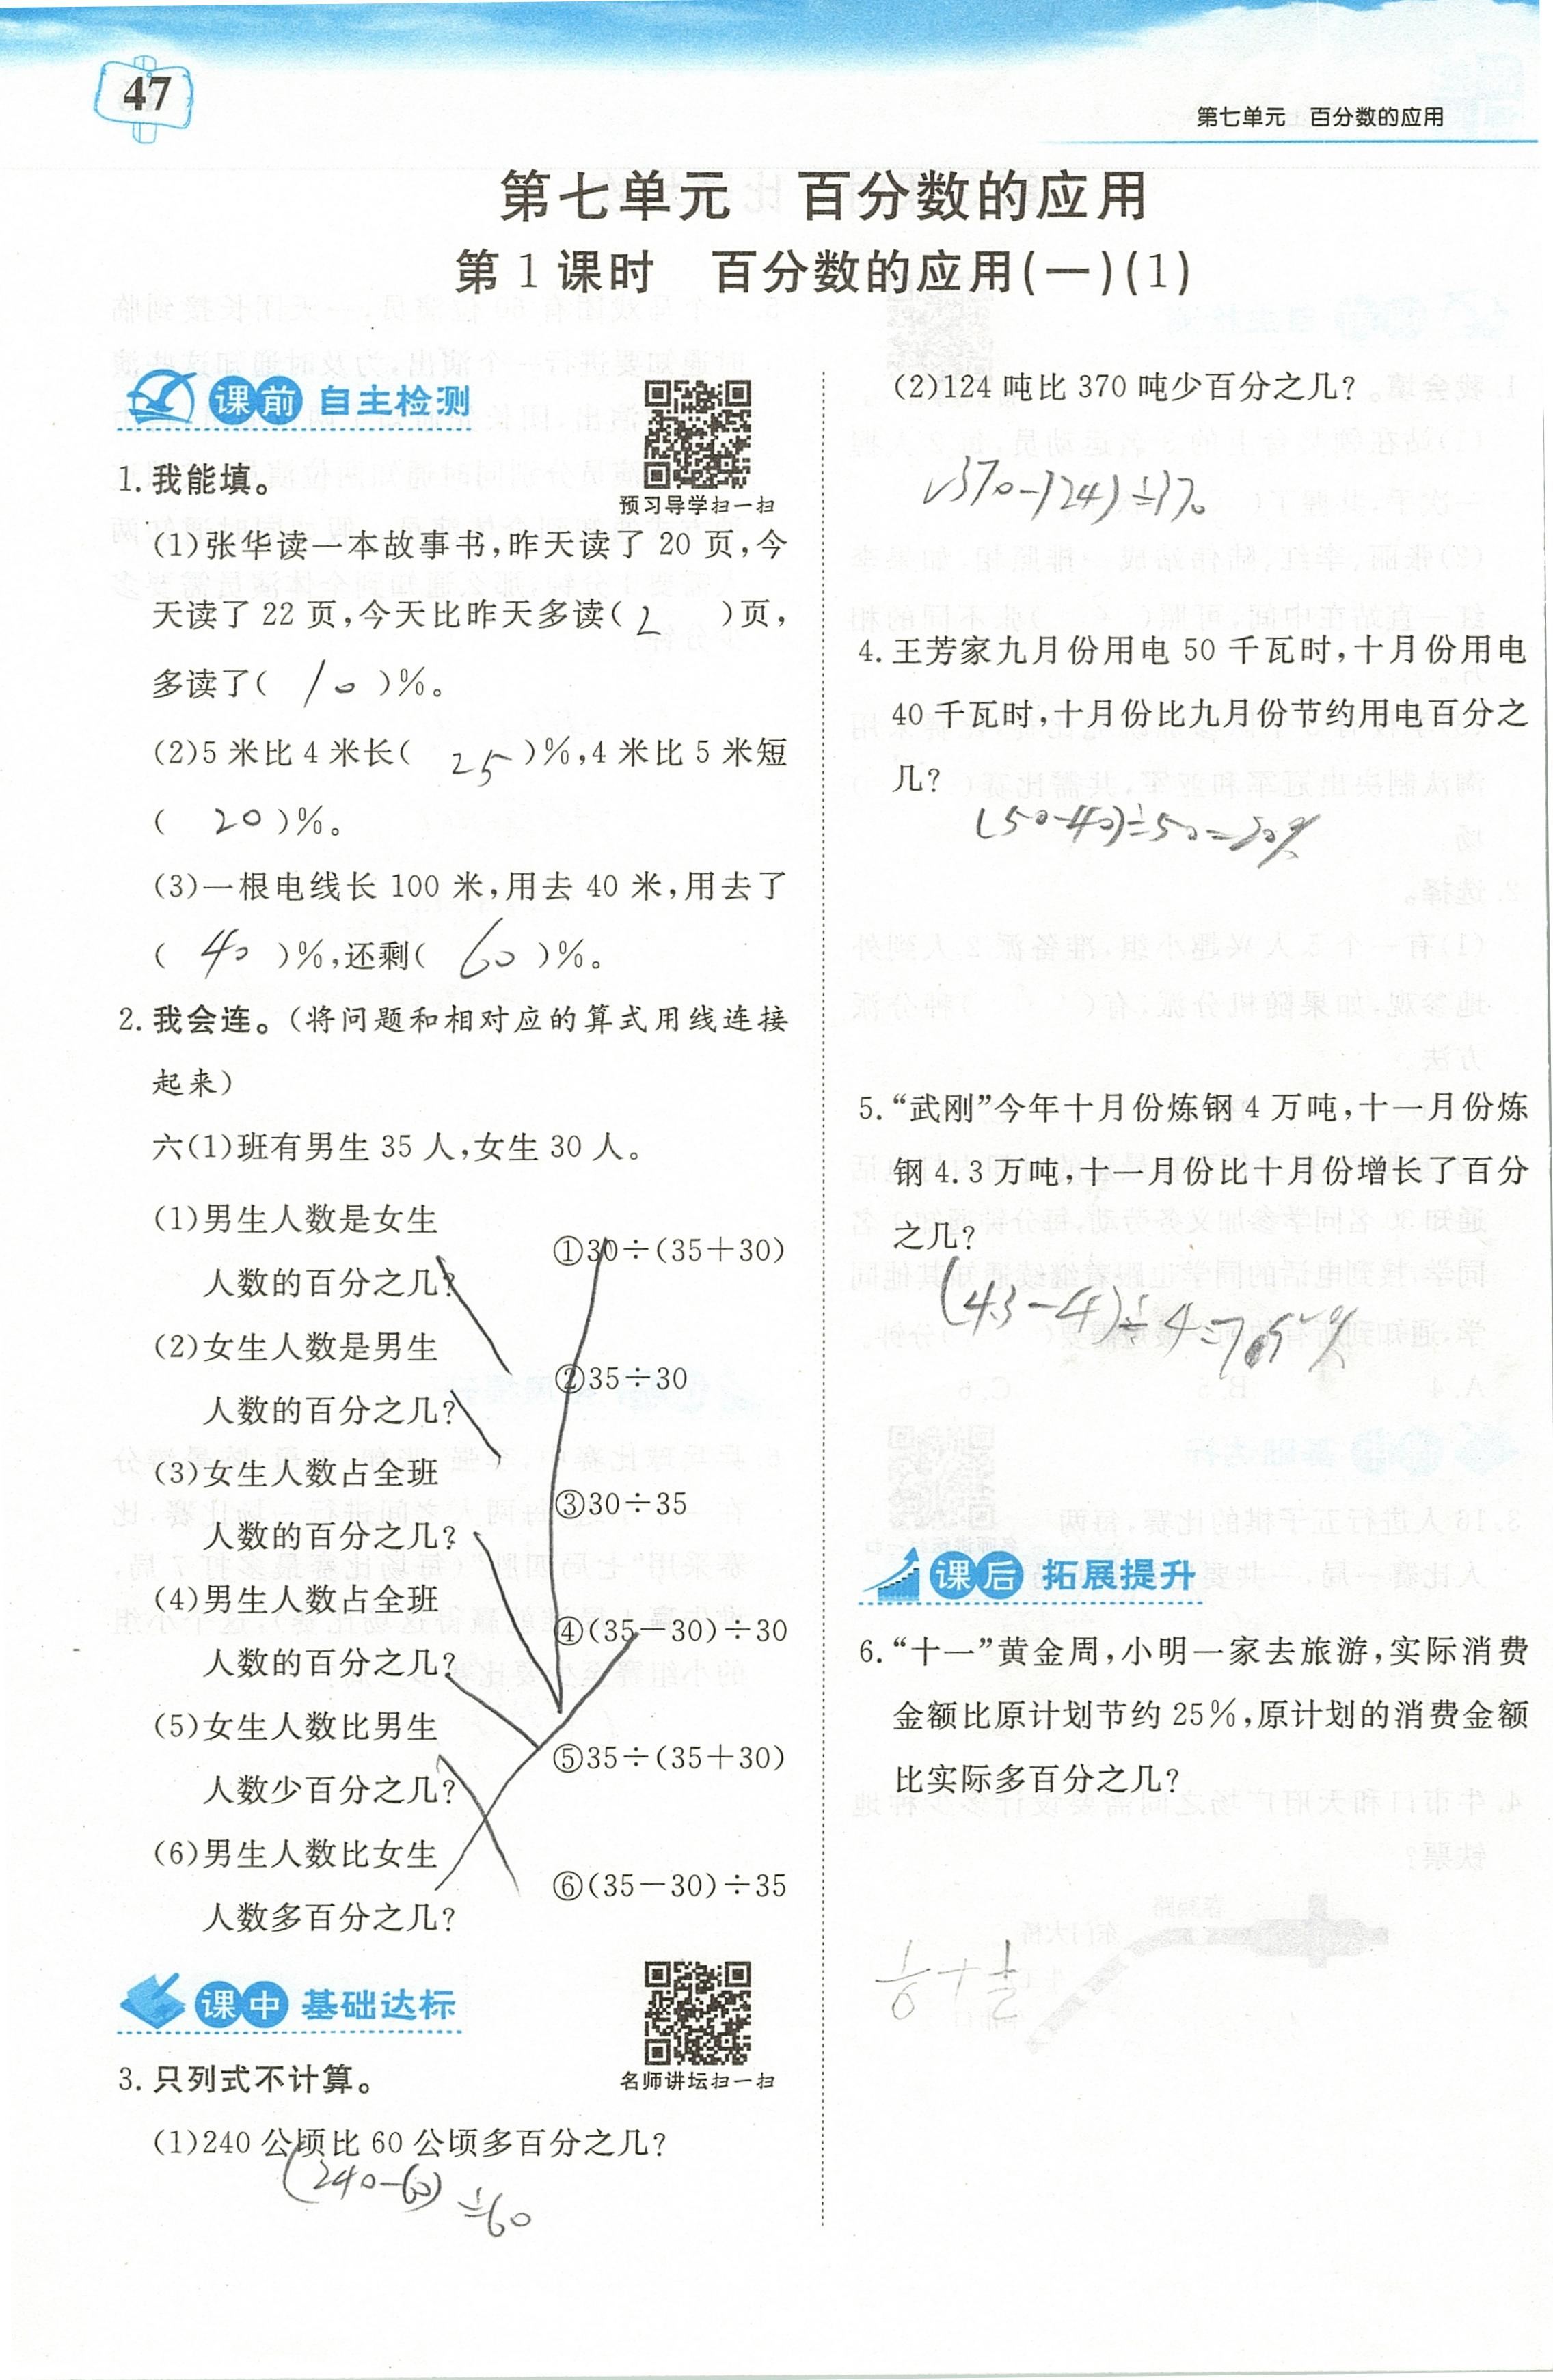 47
第七单元　百分数的应用
第七单元　百分数的应用
第1课时　百分数的应用(一)(1)
课前 自主检测
预习导学扫一扫
1. 我能填。
(1)张华读一本故事书,昨天读了 20 页,今
天读了 22 页,今天比昨天多读( 2 )页,
多读了( 10 )%。
(2)5 米比 4 米长( 25 )%,4 米比 5 米短
( 20 )%。
(3)一根电线长 100 米,用去 40 米,用去了
( 40 )%,还剩( 60 )%。
2. 我会连。(将问题和相对应的算式用线连接
起来)
六(1)班有男生 35 人,女生 30 人。
(1)男生人数是女生
人数的百分之几?
(2)女生人数是男生
人数的百分之几?
(3)女生人数占全班
人数的百分之几?
(4)男生人数占全班
人数的百分之几?
(5)女生人数比男生
人数少百分之几?
(6)男生人数比女生
人数多百分之几?
①30÷(35+30)
②35÷30
③30÷35
④(35-30)÷30
⑤35÷(35+30)
⑥(35-30)÷35
课中 基础达标
名师讲坛扫一扫
3. 只列式不计算。
(1)240 公顷比 60 公顷多百分之几?
(240-60)÷60
(2)124 吨比 370 吨少百分之几?
(370-124)÷370
4. 王芳家九月份用电 50 千瓦时,十月份用电
40 千瓦时,十月份比九月份节约用电百分之
几?
(50-40)÷50=20%
5. “武刚”今年十月份炼钢 4 万吨,十一月份炼
钢 4.3 万吨,十一月份比十月份增长了百分
之几?
(4.3-4)÷4=7.5%
课后 拓展提升
6. “十一”黄金周,小明一家去旅游,实际消费
金额比原计划节约 25%,原计划的消费金额
比实际多百分之几?